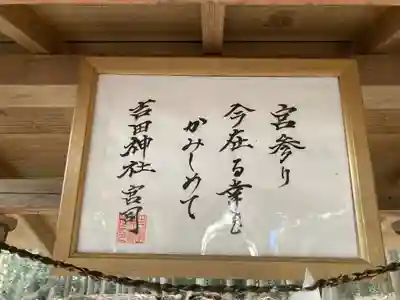 宮参り
今在る幸を
かみしめて
吉田神社 宮司